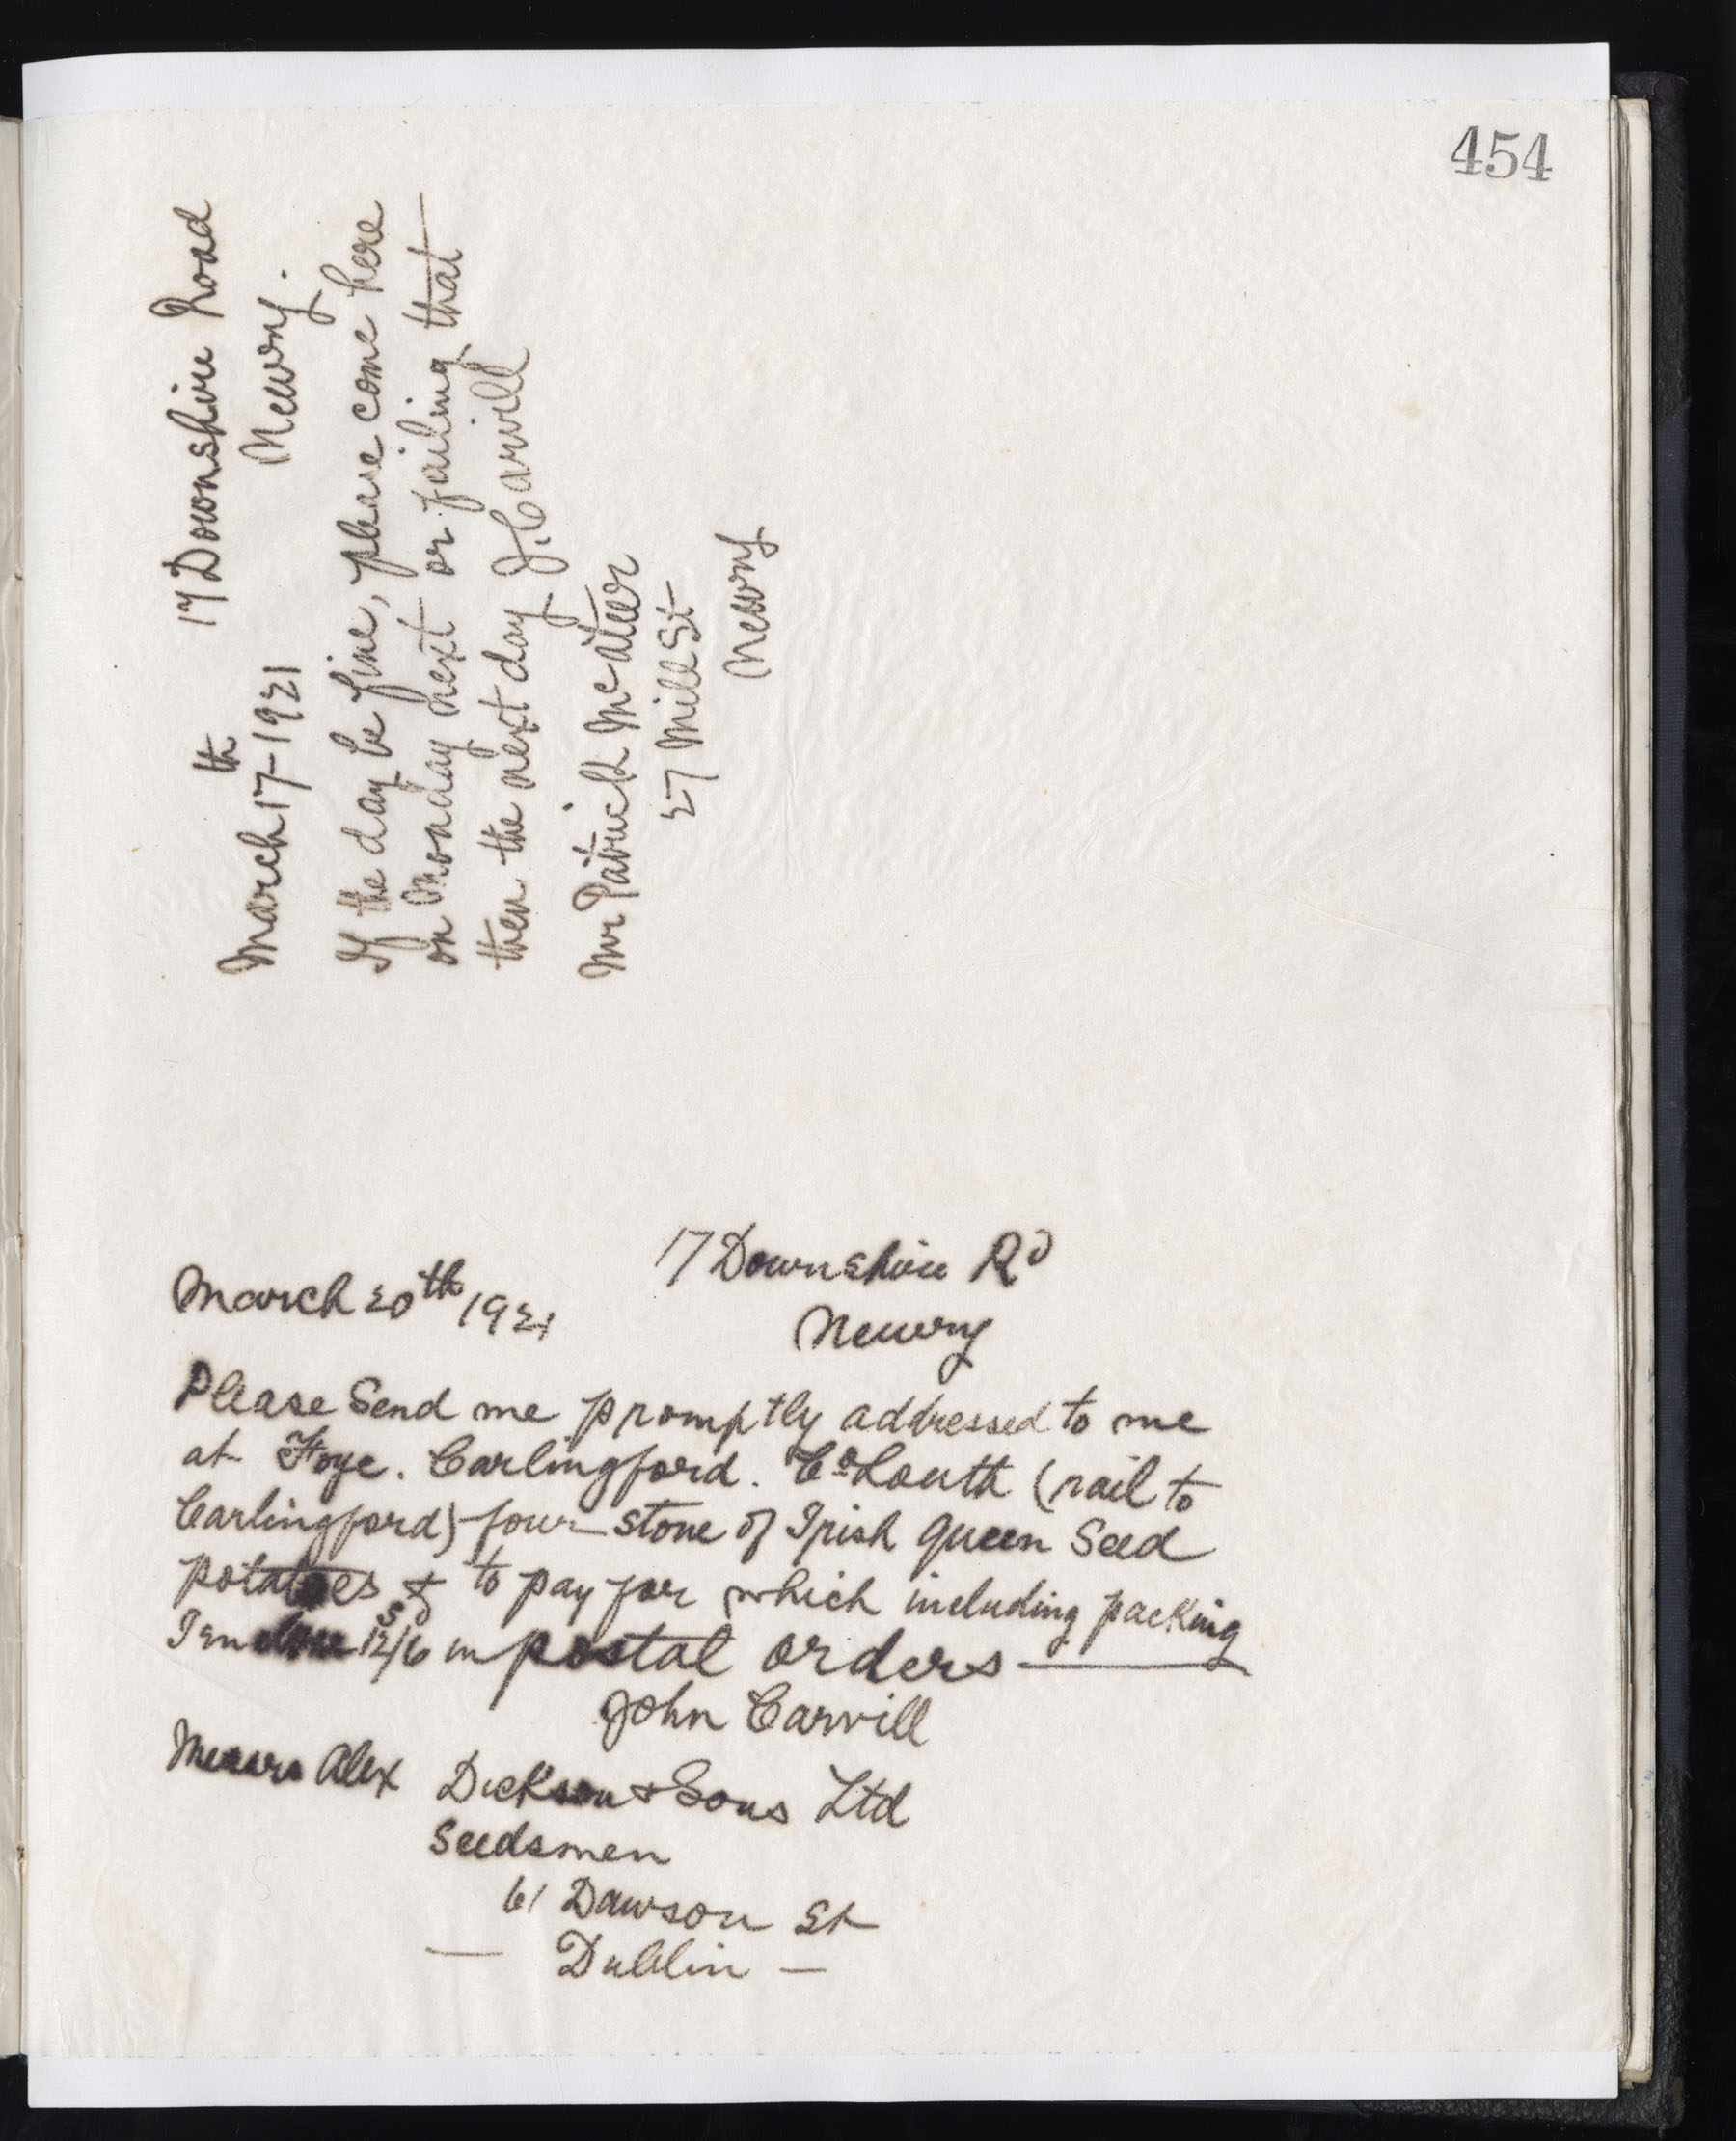 454
17 Downshire Road
Newry.
March 17th-1921
If the day be fine, please come here
on Monday next or failing that
then the next day J. Carvill
Mr Patrick McAteer
27 Mill St
Newry
17 Downshire Rd
March 20th 1921
Newry
Please Send me promptly addressed to me
at Foye. Carlingford. Co Louth (rail to
Carlingford) four stone of Irish Queen Seed
potatoes & to pay for which including packing
I enclose 12s/6d in postal orders —
John Carvill
Messrs Alex Dickson & Sons Ltd
Seedsmen
61 Dawson St
— Dublin —